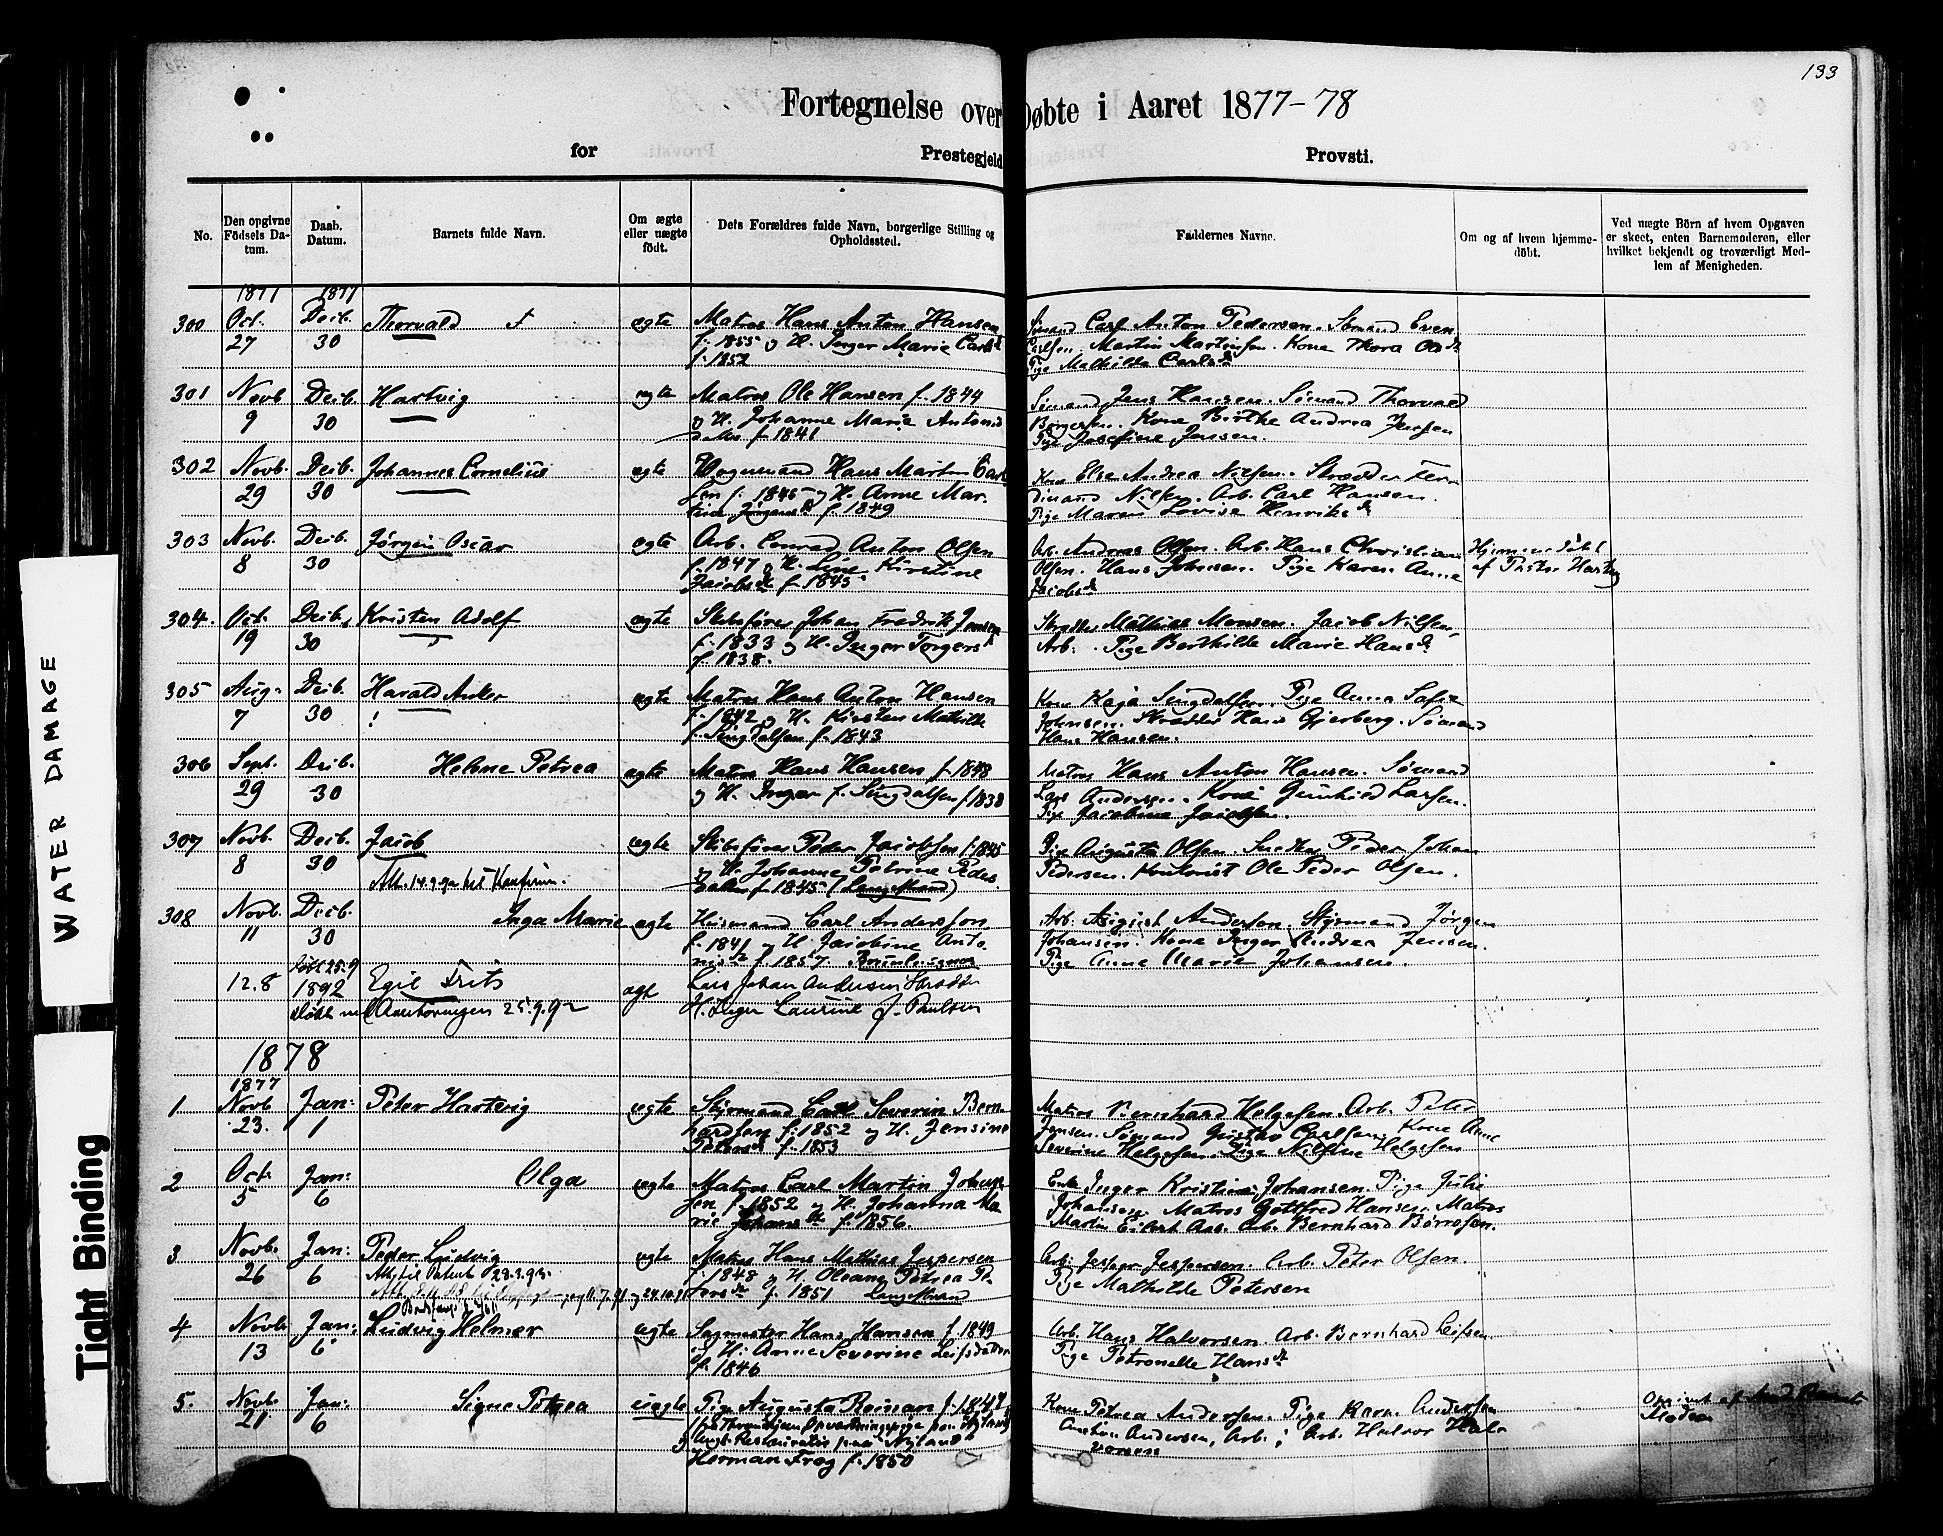 133
Fortegnelse over Døbte i Aaret 1877-78
for Prestegjeld Provsti.
No.
Den opgivne Födsels Datum.
Daab. Datum.
Barnets fulde Navn.
Om ægte eller uægte födt.
Dets Forældres fulde Navn, borgerlige Stilling og Opholdssted.
Faddernes Navne.
Om og af hvem hjemmedöbt.
Ved uægte Börn af hvem Opgaven er skeet, enten Barnemoderen, eller hvilket bekjendt og troværdigt Medlem af Menigheden.
1877 1877
300 Oct. Decb. Thorvald ægte Matros Hans Anton Hansen Sømand Carl Anton Pedersen. Sømand Even
27 30 f. 1855 og H. Inger Marie Carlsd. Carlsen. Martin Martinsen. Kone Thora
f. 1852 Pige Mathilde Carlsd.
301 Novb. Decb. Hartvig ægte Matros Ole Hansen f. 1844 Sømand Jens Hansen. Sømand Thorvald
9 30 og H. Johanne Marie Antonsdatter f. 1841 Kone Birthe Andrea Jensen
Pige Josefine Jensen.
302 Novb. Decb. Johannes Cornelius ægte Vognmand Hans Martin Carlsen Kone Else Andrea Nielsen. Skrædder Fer-
29 30 f. 1845 og H. Anne Mar- dinand Nilsen. Arb. Carl Hansen.
Jørgensd. f. 1849 Pige Maren Lovise Henriksd.
303 Novb. Decb. Jørgen Oscar ægte Arb. Conrad Anton Olsen Arb. Andreas Olsen. Arb. Hans Christian Hjemmedøbt
8 30 f. 1847 og H. Lene Kirstine Olsen. Hans Johnsen. Pige Karen Anne af Pastor Hartvig
Jacobsd. f. 1845 Jacobsd.
304. Oct. Decb. Kristen Adolf ægte Skibsfører Johan Fredrik Jensen Skrædder Mathias Monsen. Jacob Nilsen,
19 30 f. 1833 og H. Inger Torgersd. Arb. Pige Berthilde Marie Hansd.
f. 1838.
305 Aug. Decb. Harald Anker ægte Matros Hans Anton Hansen Kone Kaja Singdalsen. Pige Anna Sofie
7 30 f. 1842 og H. Kirsten Mathilde Johnsen. Skrædder Hans Gjerberg. Sømand
f. Singdalsen f. 1843 Hans Hansen.
306 Sept. Decb. Helene Petrea ægte Matros Hans Hansen f. 1848 Matros Hans Anton Hansen. Sømand
29 30 og H. Inger f. Singdalsen f. 1838 Lars Andersen. Kone Gunhild Larsen.
Pige Jacobine Jacobsen.
307 Novb. Decb. Jacob ægte Skibsfører Peder Jacobsen f. 1845 Pige Augusta Olsen. Snedker Peder Johan
8 30 og H. Johanne Petrine Peders- Pedersen. Kontorist Ole Peder Olsen.
Att. 14.9.92 til Konfirm. datter f. 1845 (Langestrand)
308 Novb. Decb. Inga Marie ægte Husmand Carl Andersson Arb. August Anderson. Styrmand Jørgen
11 30 f. 1841 og H. Jacobine Anto- Johansen. Kone Inger Andrea Jensen.
nisd. f. 1857. Pige Anne Marie Johansen.
12.8 født 25.9 1892 Egil Frits ægt Lars Johan Andersen Skrædder
H. Inger Laurine f. Paulsen
25.9.92
1878
1877
1 Novb Jan: Peter Hartvig ægte Styrmand Carl Severin Bern- Matros Bernhard Helgesen. Arb. Peter
23. 1 hardsen f. 1852 og H. Jensine Jensen. Sømand Gustav Carlsen. Kone Anne
Petersd. f. 1853 Severine Helgesen. Pige Nilsine Helgesen
2 Oct. Jan: Olga ægte Matros Carl Martin Johan- Enke Inger Kristine Johansen. Pige Julie
5 6 sen f. 1852 og H. Johanna Ma- Johansen. Matros Gottfred Hansen. Matros
rie Johansd. f. 1856. Martin Eilert Aas. Arb. Bernhard Børresen.
3 Novb. Jan: Peder Ludvig ægte Matros Hans Mathias Jespersen Arb. Jesper Jespersen. Arb. Peter Olsen.
26 6 f. 1848 og H. Oleane Petrea Pe- Pige Mathilde Petersen
dersd. f. 1851 Langestrand
4 Novb. Jan: Ludvig Helmer ægte Sagmester Hans Hansen f. 1849 Arb. Hans Halvorsen. Arb. Bernhard Leifsen
13 6 og H. Anne Severine Leifsdatter Pige Petronelle Hansd.
f. 1846
5. Novb. Jan: Signe Petrea uægte Pige Augusta Reiman f. 1847 Kone Petrea Andersen. Pige Karen Andersen
21 6 Anton Andersen, Arb.; Arb. Halvor Hal-
vorsen
Herman Frog f. 1850
Opgivet af
Moderen
WATER DAMAGE
Tight Binding